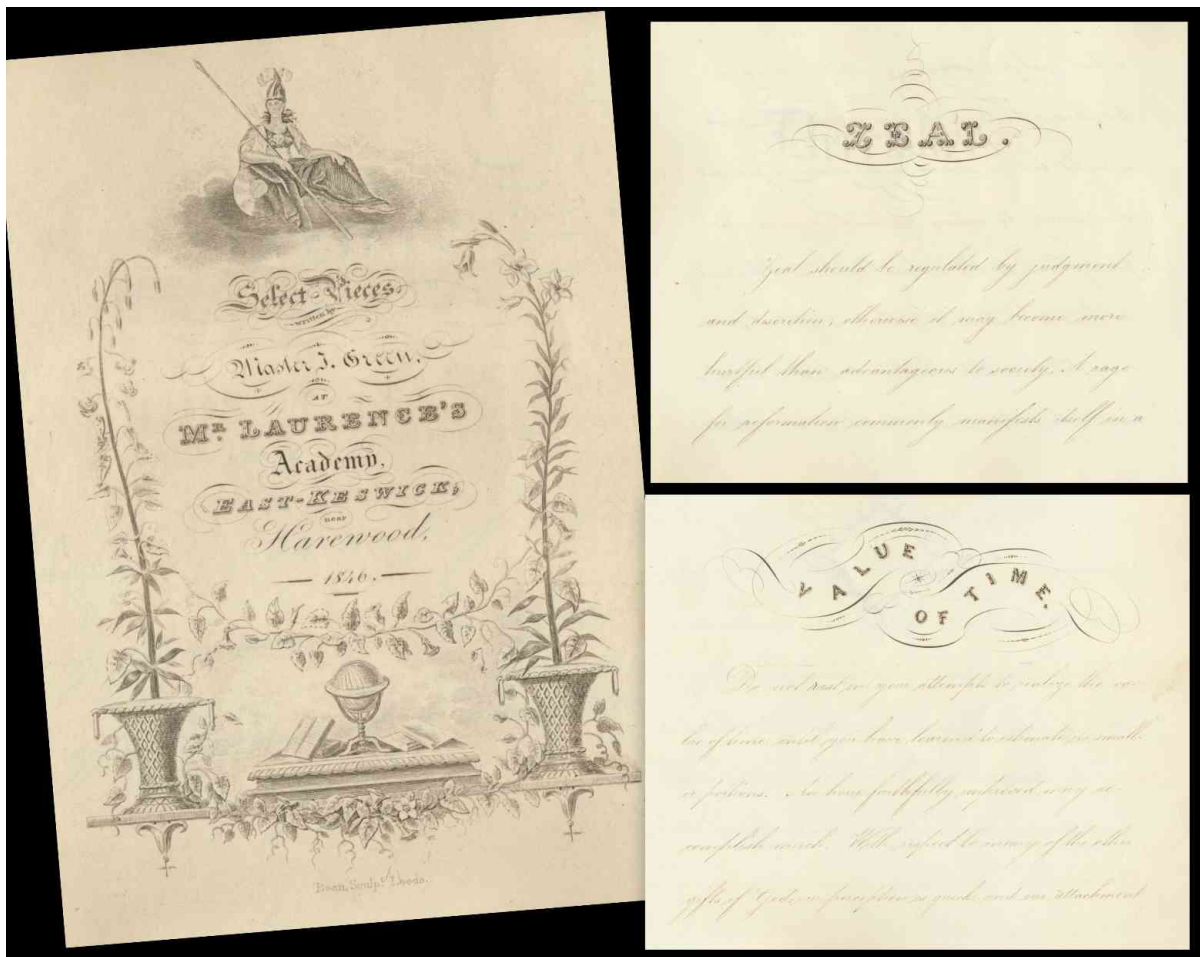 Select Pieces
written by
Master J. Green,
AT
MR. LAURENCE'S
Academy,
EAST-KESWICK,
near
Harewood,
1846.
Bean, Sculpt. Leeds.
ZEAL.
Zeal should be regulated by judgment
and discretion; otherwise it may become more
hurtful than advantageous to society. A rage
for reformation commonly manifests itself in a
VALUE
OF TIME.
Do not rest in your attempts to realize the va-
lue of time until you have learned to estimate its small-
er portions. An hour faithfully improved may ac-
complish much. With respect to many of the other
gifts of God, our perception is quick and our attachment